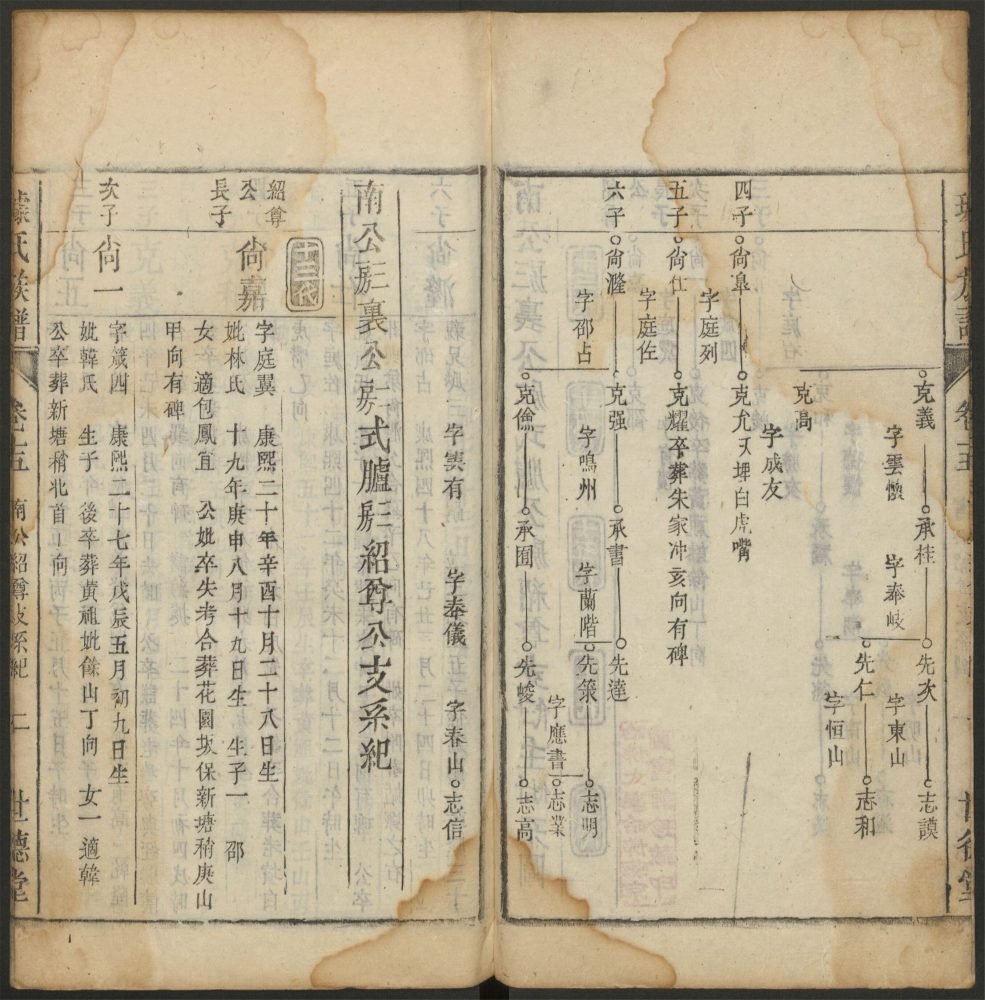 克義 承桂 先次 志謨
字雲懷 字奉岐 字東山
先仁 志和
字恒山
克高
字成友
四子 尙臯 克允 天埋白虎嘴
字庭列
五子 尙仕 克耀卒葬朱家冲亥向有碑
字庭佐
六子 尙漋 克强 承書 先達
字邵占 字鳴州 字蘭階 先策 志明
字應書 志業
克儉 承囿 先峻 志高
字雲有 字奉儀 字春山 志信
南公三房裏公二房式臚三房紹尊公支系紀
十三代
紹尊公長子 尙嘉 字庭翼 康熙二十年辛酉十月二十八日生
妣林氏 十九年庚申八月十九日生 生子一 邵
女一適包鳳宜 公妣卒失考合葬花園坂保新塘稍庚山
甲向有碑
次子 尙一 字箴四 康熙二十七年戊辰五月初九日生
妣韓氏 生子 後卒葬黄祖妣山丁向 女一 適韓
公卒葬新塘稍北首丁向
氏族譜 卷十五 南公紹尊支系紀 二 世德堂